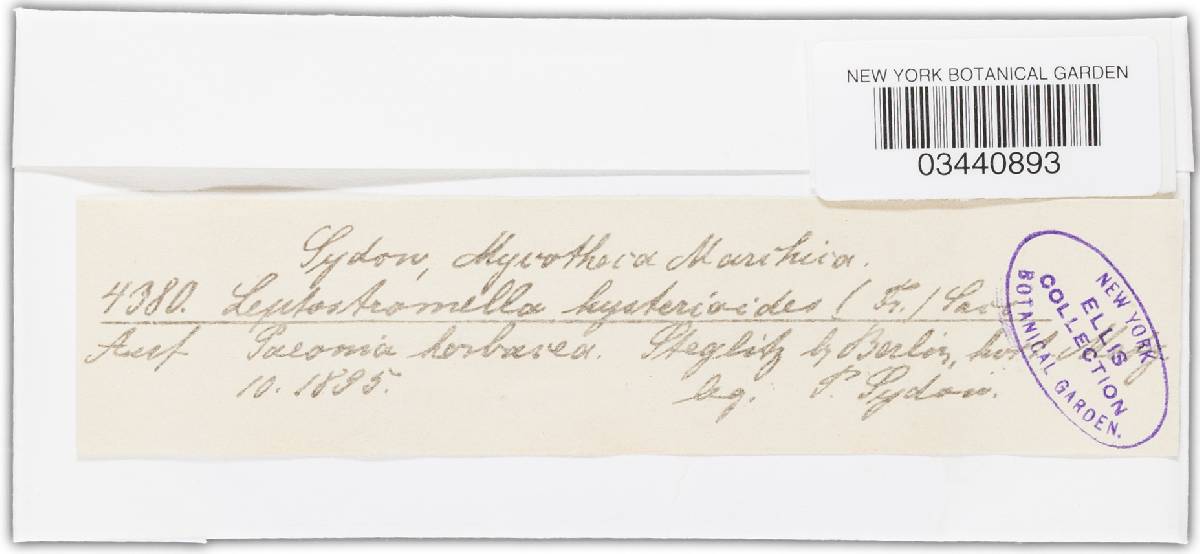 NEW YORK BOTANICAL GARDEN
03440893
Sydow, Mycotheca Marchica.
4380. Leptostromella hysterioides (Fr.) Sacc.
Auf Paeonia herbacea. Steglitz b/ Berlin, hort.
10. 1895. leg. P. Sydow.
NEW YORK
ELLIS
COLLECTION
BOTANICAL GARDEN.